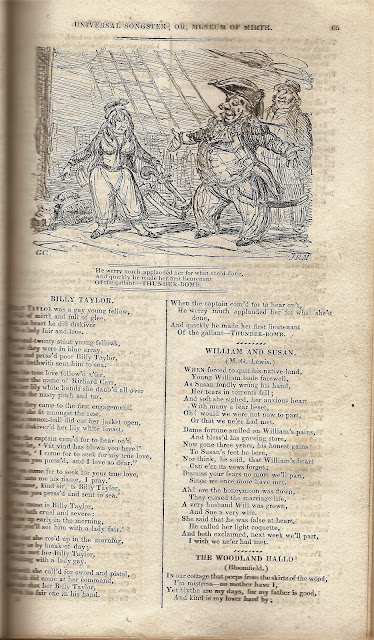 UNIVERSAL SONGSTER; OR, MUSEUM OF MIRTH.
65
GC
J.R.M
He werry much applauded her for what she'd done,
And quickly he made her first lieutenant
Of the gallant—THUNDER-BOMB.
BILLY TAYLOR.
TAYLOR was a gay young fellow,
of mirth and full of glee,
heart he did diskiver
lady fair and free.
and-twenty stout young fellows,
they were in blue array,
and press'd poor Billy Taylor,
forthwith sent him to sea.
true love follow'd a'ter,
the name of Richard Carr,
lily white hands she daub'd all over
the nasty pitch and tar.
they came to the first engagement
she fit amongst the rest,
cannon-ball did cut her jacket open,
diskiver'd her lily white breast.
captain com'd for to hear on't,
he, 'Vat vind has blown you here?'
'I come for to seek for my true love,
you press'd, and I love so dear.'
come for to seek for your true love,
me his name, I pray.'
kind sir, is Billy Taylor,
you press'd and sent to sea.'
name is Billy Taylor,
cruel and severe;
up early in the morning,
see him with a lady fair.'
she ros'd up in the morning,
by break of day;
met her Billy Taylor,
with a lady gay.
she call'd for sword and pistol,
did come at her command,
shot her Billy Taylor,
fair one in his hand.
When the captain com'd for to hear on't,
He werry much applauded her for what she'd
done,
And quickly he made her first lieutenant
Of the gallant—THUNDER-BOMB.
WILLIAM AND SUSAN.
(M. G. Lewis.)
WHEN forced to quit his native land,
Young William bade farewell,
As Susan fondly wrung his hand,
Her tears in torrents fell;
And soft she sighed, her anxious heart
With many a fear beset,
Oh! would we were not now to part,
Or that we ne'er had met.
Dame fortune smiled on William's pains,
And bless'd his growing store,
Now gone three years, his honest gains
To Susan's feet he bore.
Nor think, he said, that William's heart
Can e'er its vows forget;
Dismiss your fears no more we'll part,
Since we once more have met.
Ah! ere the honeymoon was flown,
They cursed the marriage life,
A very husband Will was grown,
And Sue a very wife.
She said that he was false at heart,
He called her light coquette,
And both exclaimed, next week we'll part,
I wish we ne'er had met.
THE WOODLAND HALLO
(Bloomfield.)
IN our cottage that peeps from the skirts of the wood,
I'm mistress—no mother have I,
Yet blythe are my days, for my father is good,
And kind is my lover hard by;